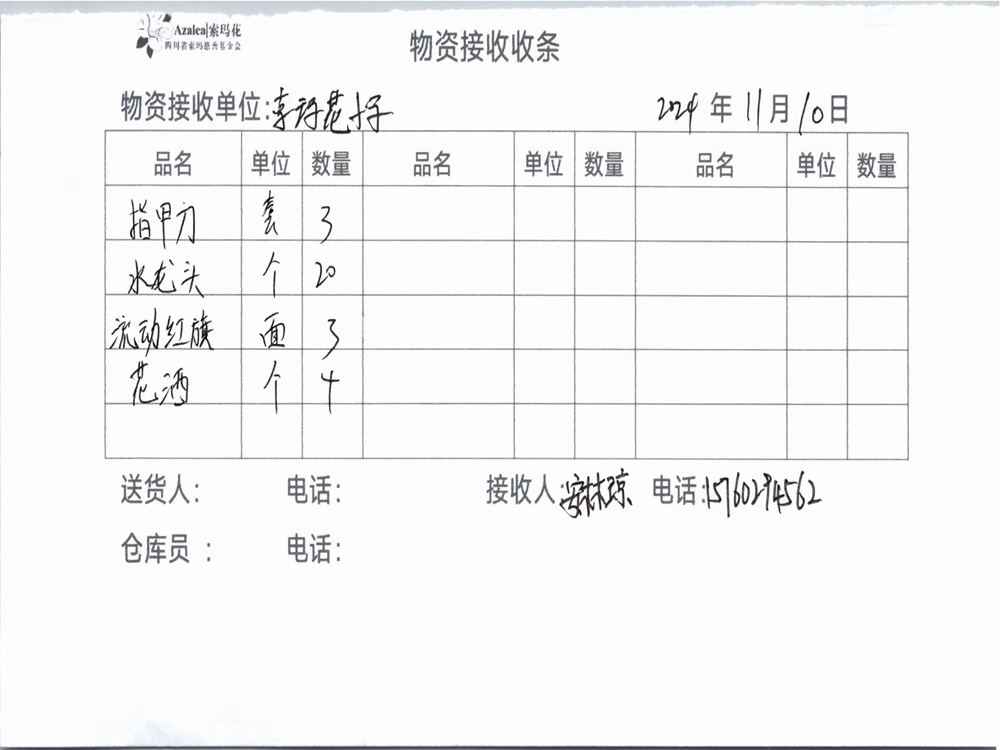 Azalea|索玛花
四川省索玛慈善基金会
物资接收收条
物资接收单位:索玛花小学
2024 年 11 月 10 日
品名 单位 数量 品名 单位 数量 品名 单位 数量
指甲刀 套 3
水龙头 个 20
流动红旗 面 3
花洒 个 4
送货人: 电话: 接收人: 电话:15760294562
仓库员 : 电话: